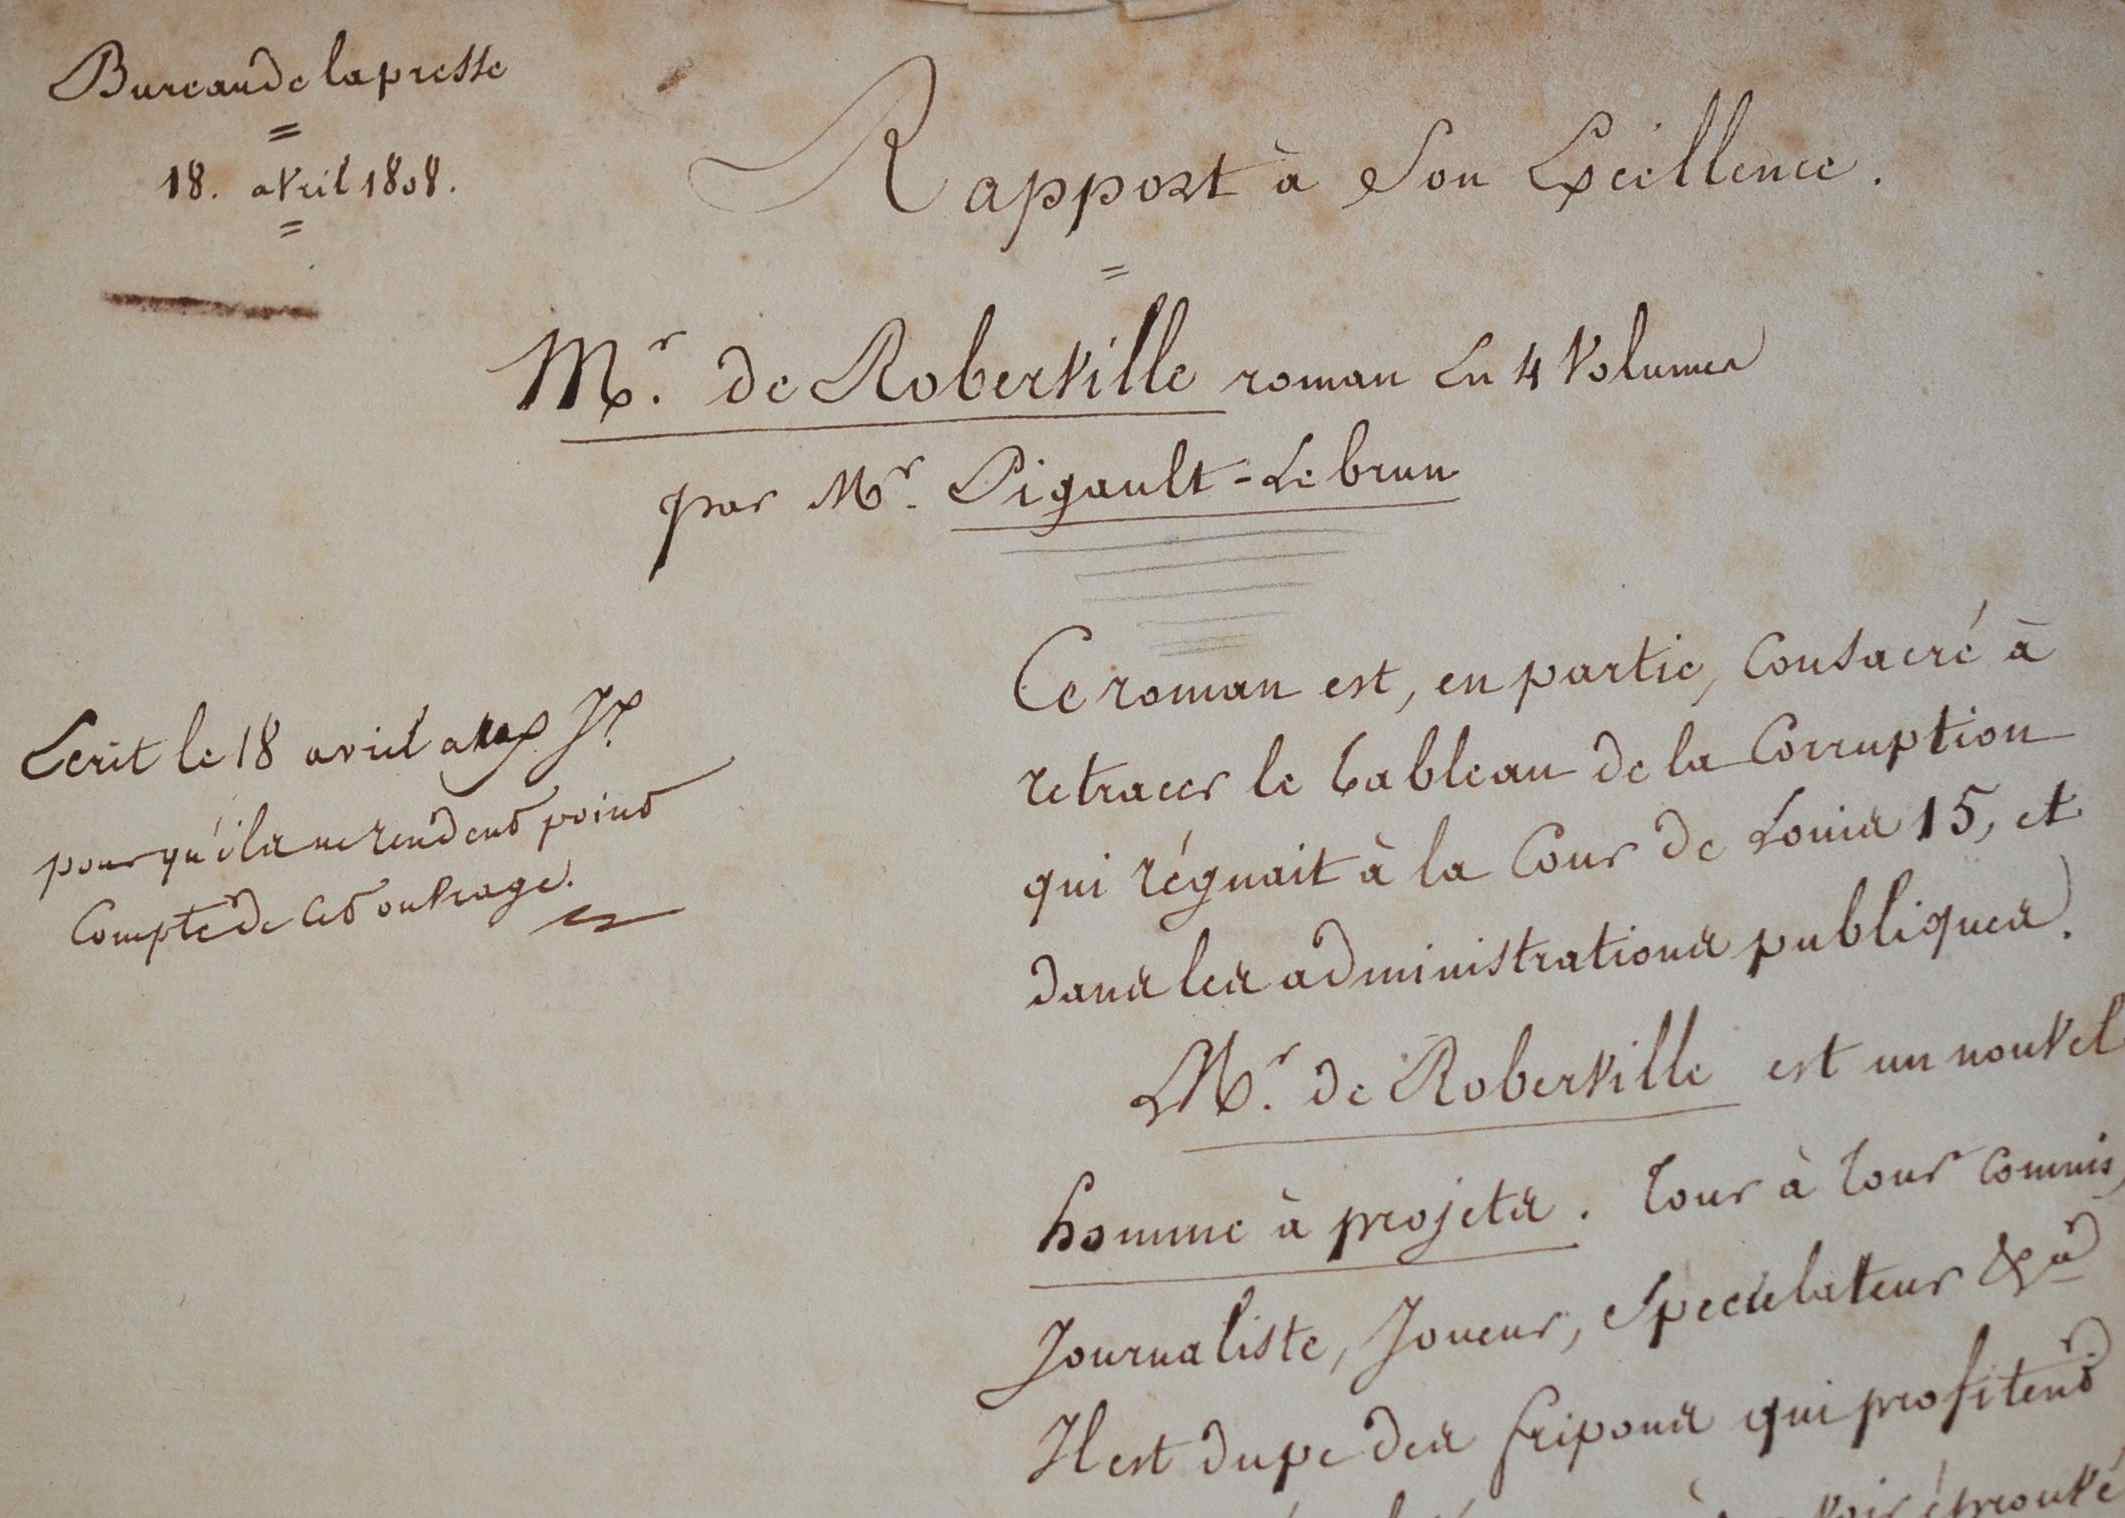 Bureau de la presse
=
18. avril 1808.
=
Rapport à Son Excellence.
=
Mr. de Roberville roman en 4 Volumes
par Mr. Pigault-Lebrun
Ecrit le 18 avril aux Jx.
pour qu'ils ne rendent point
Compte de cet ouvrage.
Ce roman est, en partie, Consacré à
retracer le tableau de la Corruption
qui régnait à la Cour de Louis 15, et
dans les administrations publiques.
Mr. de Roberville est un nouvel
homme à projets. Tour à tour Commis,
Journaliste, Joueur, Speculateur &a
Il est dupe des fripons qui profitent
éprouvé